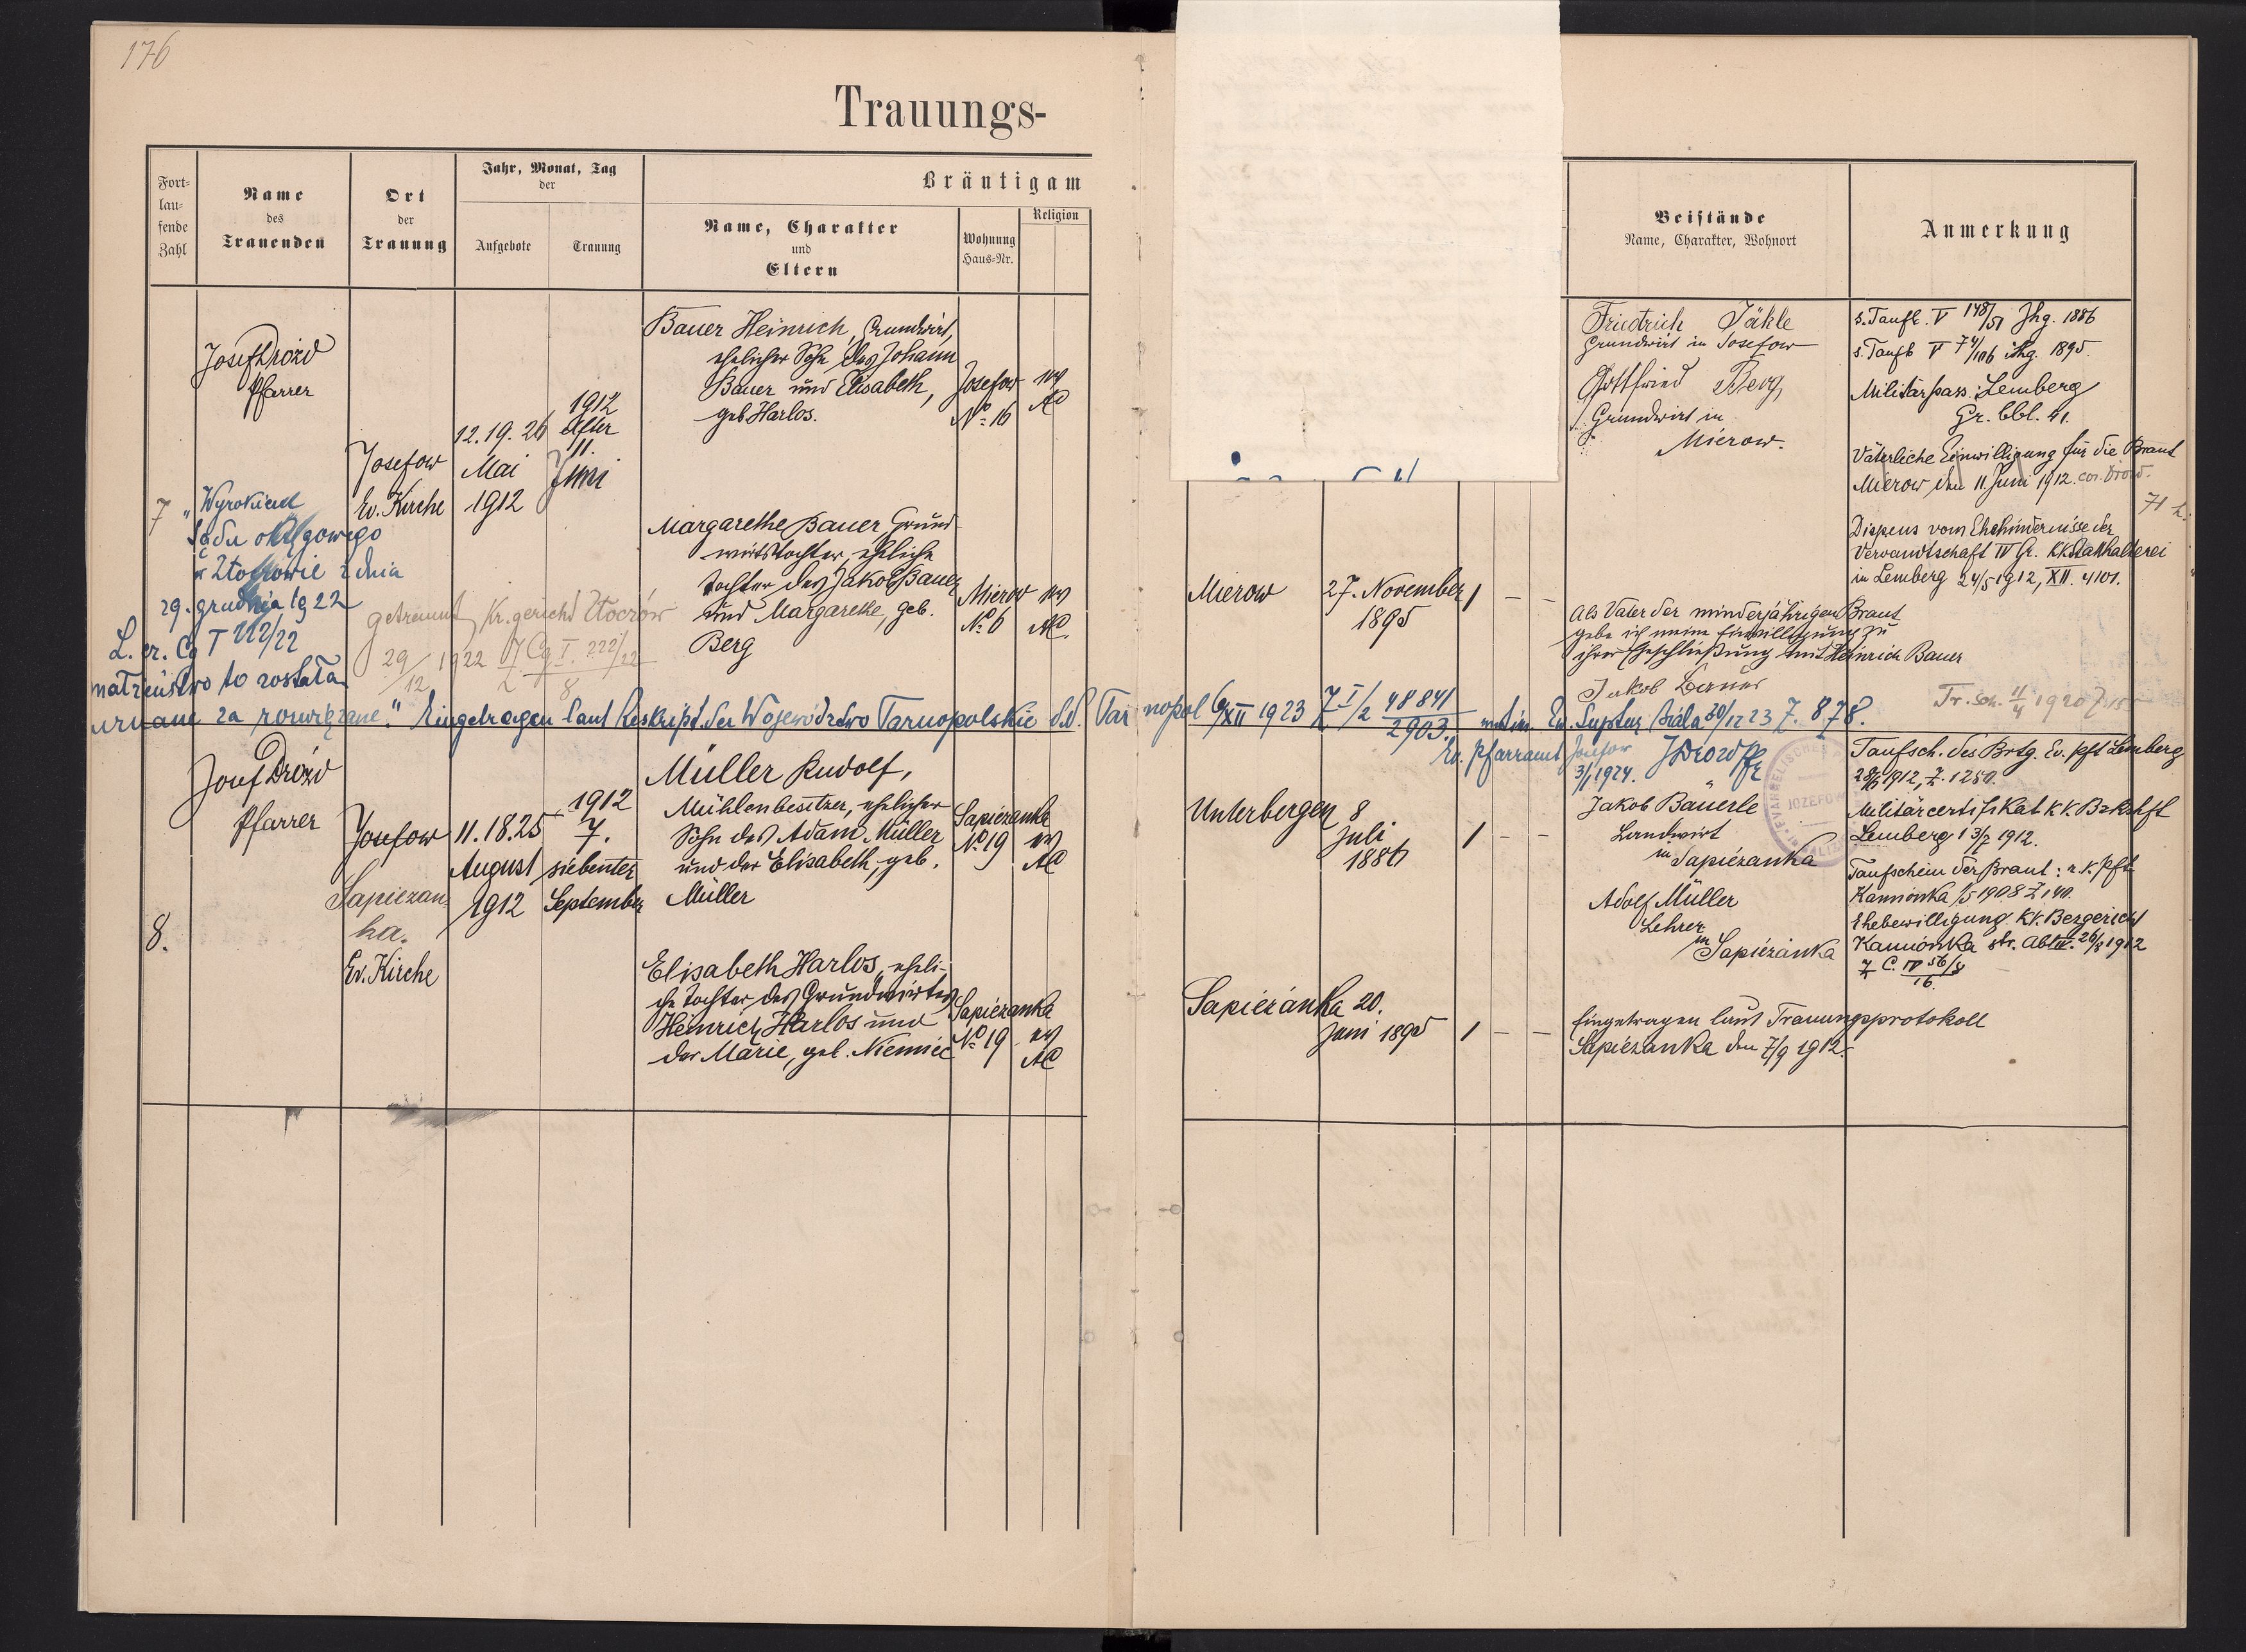 176
Trauungs-
Fort-
lau-
fende
Zahl
Name
des
Trauenden
Ort
der
Trauung
Jahr, Monat, Tag
der
Aufgebote
Trauung
Bräutigam
Name, Charakter
und
Eltern
Wohnung
Haus-Nr.
Religion
Beistände
Name, Charakter, Wohnort
Anmerkung
7
Josef Drozd
Pfarrer
Josefow
Ev. Kirche
12. 19. 26
Mai
1912
1912
11.
Juni
Bauer Heinrich, Grundwirt,
ehelicher Sohn des Johann
Bauer und Elisabeth,
geb. Harlos.
Josefow
No 16
ev
AC
Margarethe Bauer, Grund-
wirtstochter, eheliche
Tochter des Jakob Bauer
und Margarethe, geb.
Berg
Mierow
No 6
ev
AC.
Mierow
27. November
1895
1 – –
Friedrich Jäkle
Grundwirt in Josefow
Gottfried Berg
Grundwirt in
Mierow.
s. Taufb. V 148/51 Jhg. 1886
s. Taufb V 74/106 Jhg. 1895.
Militärpass: Lemberg
Gr. bbl. 41.
Väterliche Einwilligung für die Braut
Mierow den 11. Juni 1912.
Dispens vom Ehehindernisse der
Verwandtschaft IV Gr. k.k. Statthalterei
in Lemberg 24/5 1912, XII. 4101.
Als Vater der minderjährigen Braut
gebe ich meine Einwilligung zu
ihrer Eheschließung mit Heinrich Bauer
Jakob Bauer
„Wyrokiem
Sądu okręgowego
w Złoczowie z dnia
29. grudnia 1922
L. cz. Cg I 222/22
małżeństwo to zostało
uznane za rozwiązane.“ Eingetragen laut Reskript der Województwo Tarnopolskie d.d. Tarnopol 6/XII 1923 Z I/2 48841/2903. Ev. Suptur Biala 20/12 23 Z. 878.
getrennt Kr. gericht Złoczów
29/12 1922 Z Cg I. 222/22
8
Tr. sch. 11/4 1920 Z.
Ev. Pfarramt Josefow
3/1 1924. JDrozd Pfr
8.
Josef Drozd
Pfarrer
Josefow
Sapiezan-
ka.
Ev. Kirche
11. 18. 25
August
1912
1912
7.
siebenter
September
Müller Rudolf,
Mühlenbesitzer, ehelicher
Sohn des Adam Müller
und der Elisabeth, geb.
Müller
Sapiezanka
No 19
ev
AC
Elisabeth Harlos, eheli-
che Tochter des Grundwirtes
Heinrich Harlos und
der Marie, geb. Niemiec
Sapiezanka
No 19
ev
AC
Unterbergen
8
Juli
1886
1 – –
Sapiezanka
20.
Juni 1895
1 – –
Jakob Bäuerle
Landwirt
in Sapiezanka
Adolf Müller
Lehrer
in
Sapiezanka
Taufsch. des Brtg. Ev. Pft Lemberg
1912, Z. 1250.
Militärcertifikat k.k. Bzkshft
Lemberg 13/7 1912.
Taufschein der Braut: r. k. Pft
Kamionka 1/5 1908 Z 140.
Ehebewilligung k.k. Bezgericht
Kamionka str. Abt IV. 26/8 1912
Z C. IV 56/8
16.
Eingetragen laut Trauungsprotokoll
Sapiezanka den 7/9 1912.